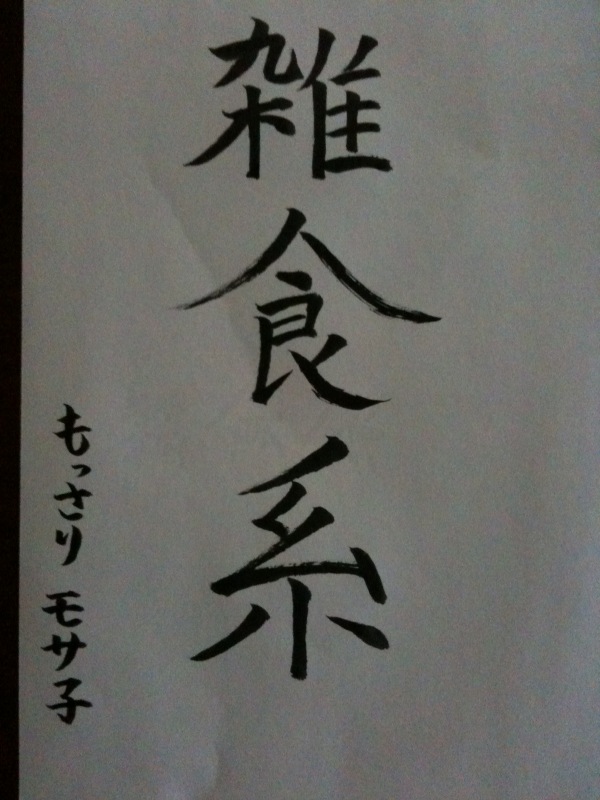 雑食系
もっさり モサ子